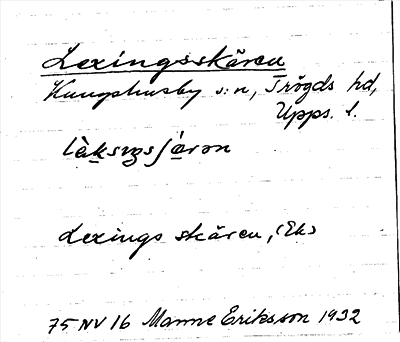 Lexingsskären
Kungshusby s:n, Trögds hd,
Upps. l.
lèksıŋsʃä̀rən
Lexings skären, (Ek)
75 NV 16 Manne Eriksson 1932